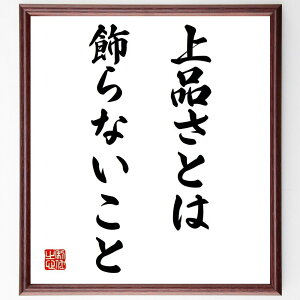 上品さとは
飾らないこと